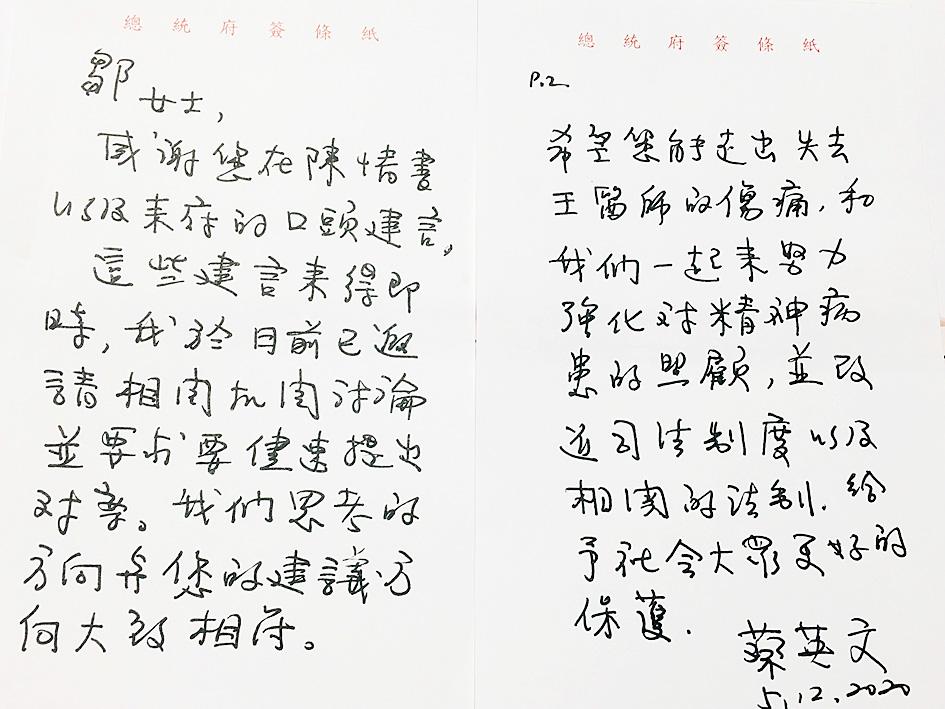 總統府簽條紙
鄒女士,
感谢您在陳情書
以及来府的口頭建言,
這些建言来得即
時,我於日前已邀
請相関机関討論
並要求要儘速提出
对案。我们思考的
方向与您的建議方
向大致相符。
總統府簽條紙
P.2
希望您能走出失去
王醫師的傷痛,和
我们一起来努力
強化对精神病
患的照顧,並改
造司法制度以及
相関的法制.給
予社会大眾更好的
保護.
蔡英文
5.12.2020